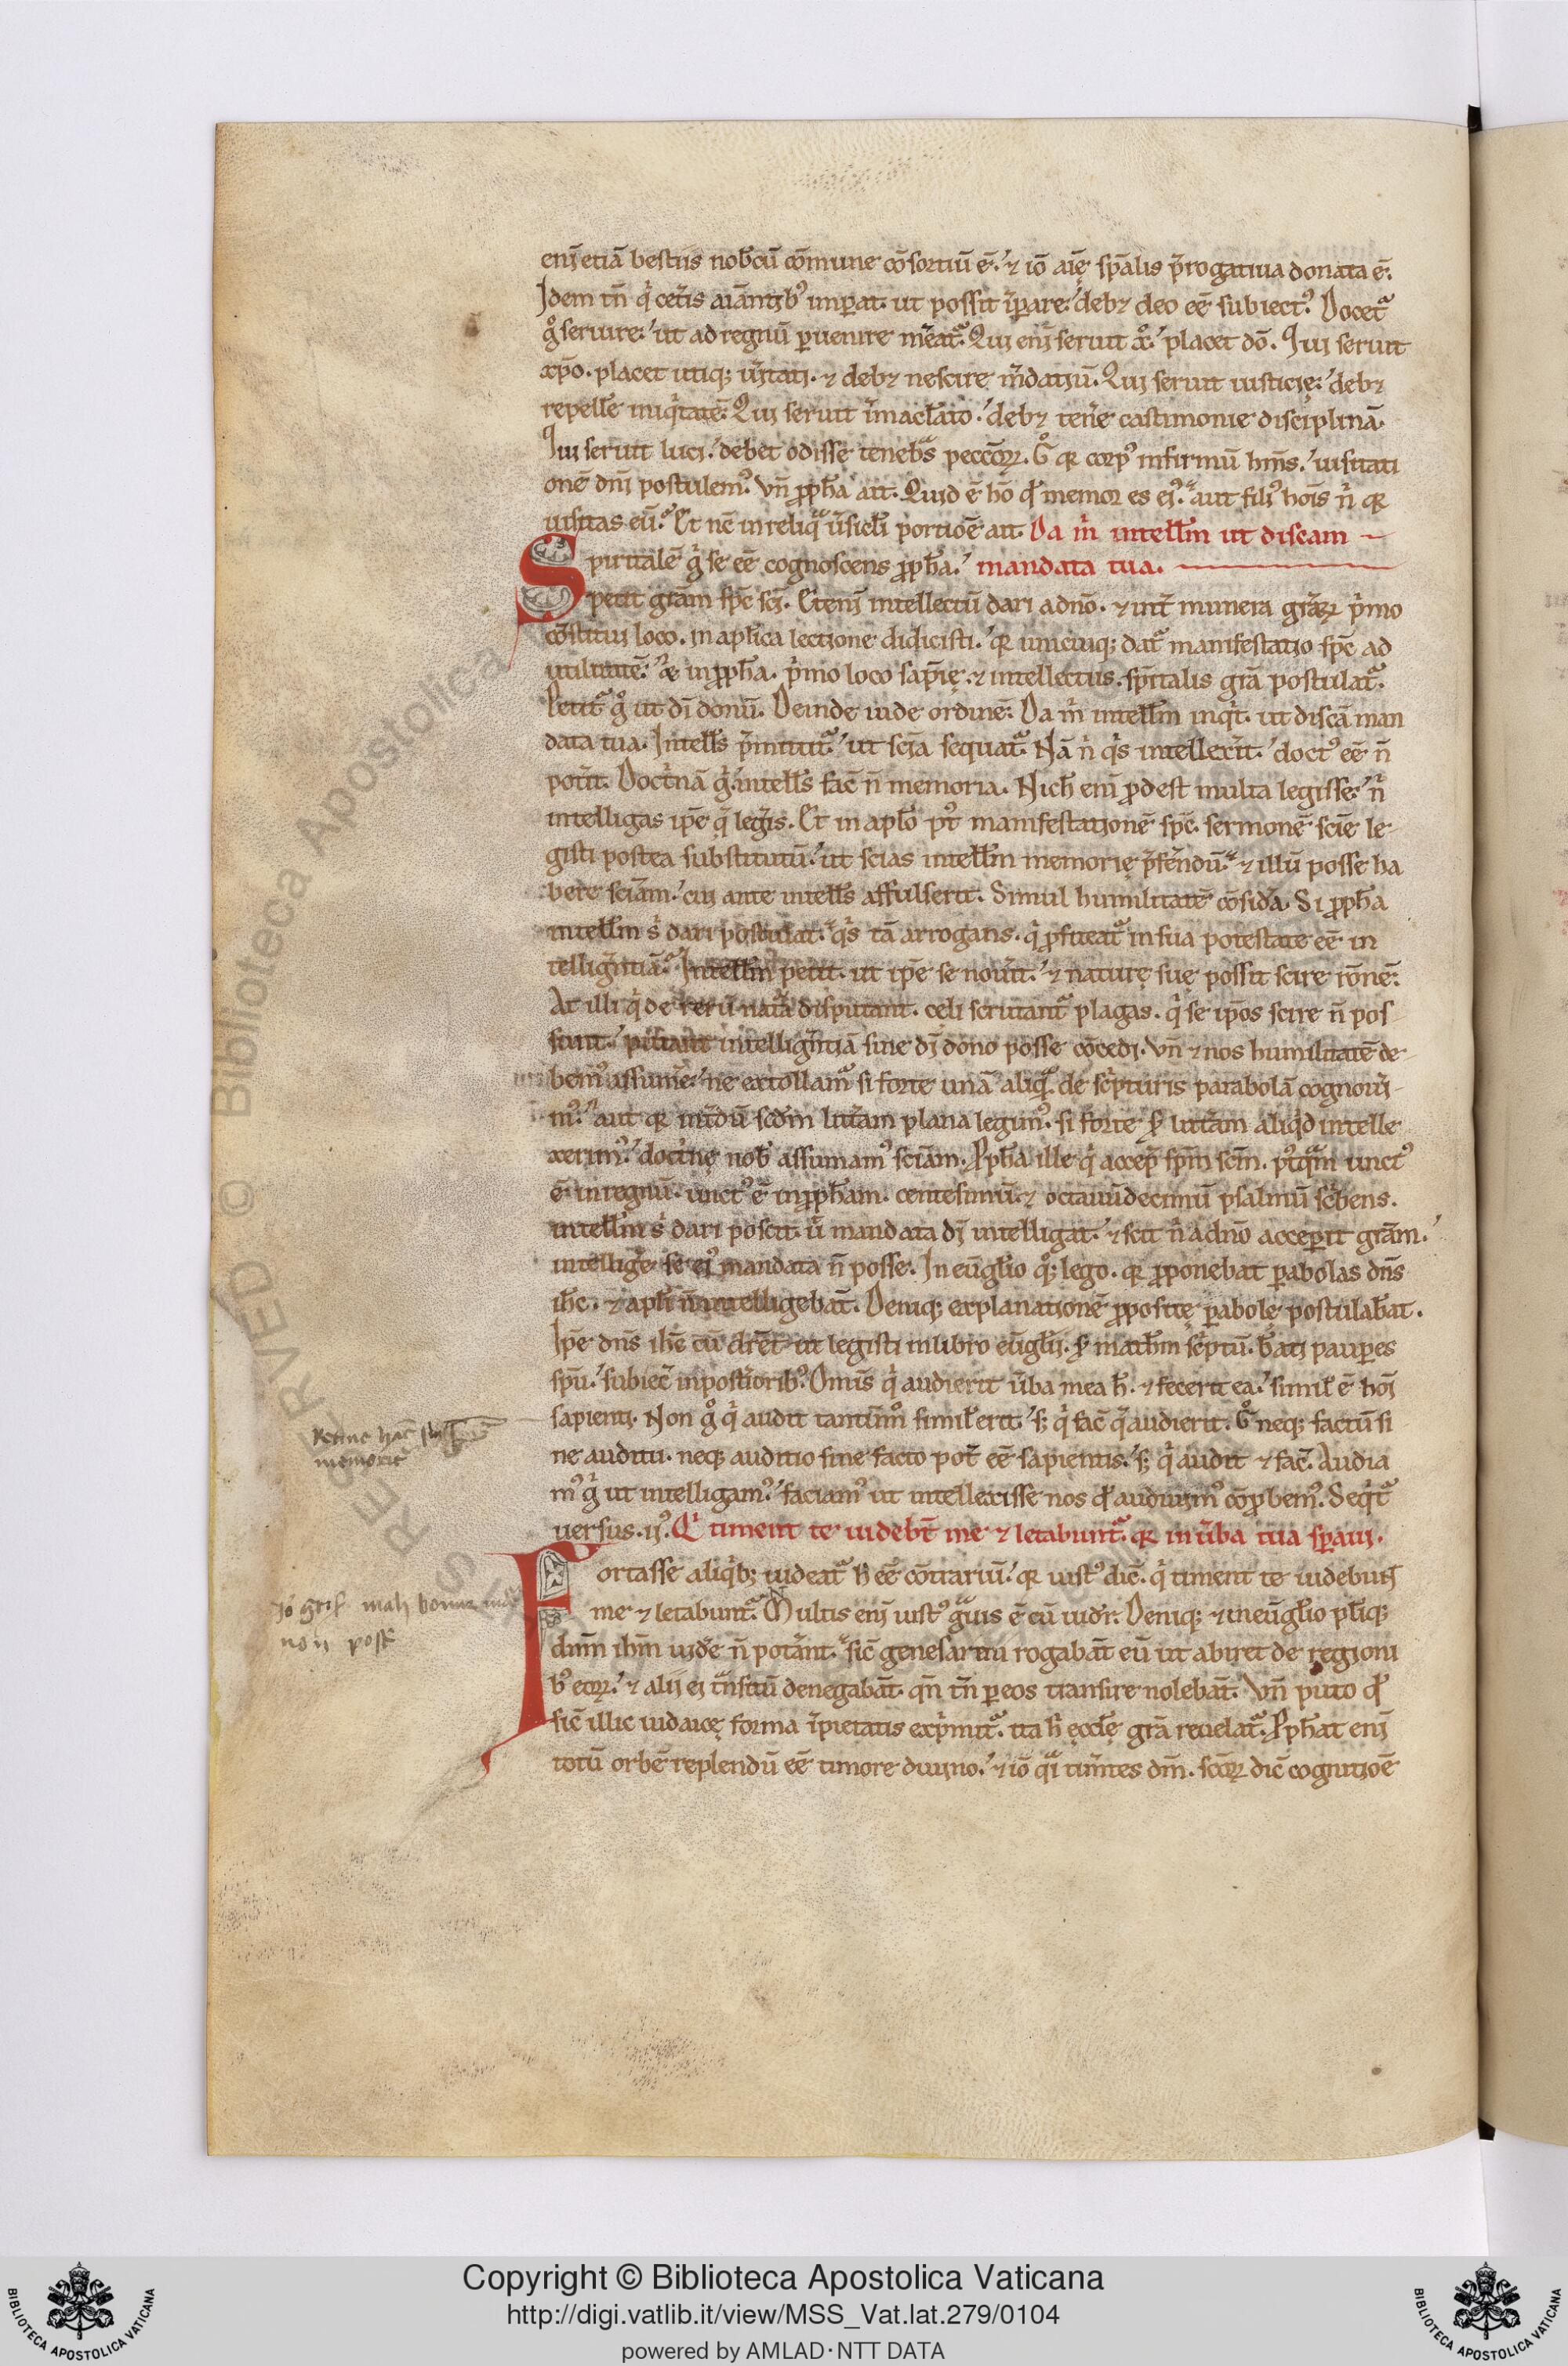 enī etiā bestiis nob̄ cū cōmune cōsortiū ē. ⁊ iō aīę sp̄alis p̄rogatiua donata ē.
Idem tn̄ qͥ cet̄is aīantibꝰ imꝑat. ut possit īꝑare. debꝫ deo eē subiectꝰ. Docet᷑
gͦ seruire. ut ad regnū ꝑuenire m̄eat᷑. Qui enī seruit xp̄o. placet dō. Qui seruit
xp̄o. placet utiqꝫ ūitati. ⁊ debꝫ nescire m̄datiū. Qui seruit iusticię. debꝫ
repelle iniqͥtatē. Qui seruit īmacl̄ato. debꝫ ten̄e castimonie disciplinā.
Qui seruit luci. debet odisse tenebᷓs pecc̄oꝝ. Gͦ qꝛ corpꝰ infirmū hm̄s. uisitati
onē dn̄i postulemꝰ. Vn̄ ꝓph̄a ait. Quid ē hō qd̄ memor es eiꝰ. aut filiꝰ hoīs nͥ qꝛ
uisitas eū. Et nē in reliqᷓ ūsicl̄i portiōe ait. Da mͥ intell̄m ut discam
Spiritalē gͥ se eē cognoscens ꝓph̄a. mandata tua.
petit gr̄am sp̄c sc̄i. Etenī intellectū dari a dn̄o. ⁊ int̄ munera gr̄aꝝ pͥmo
cōstitui loco. in apl̄ica lectione didicisti. qꝛ unicuiqꝫ dat᷑ manifestatio sp̄c ad
utilitatē. in ꝓph̄a. pͥmo loco sap̄ię. ⁊ intellectus. sp̄italis gr̄a postulat᷑.
Petit᷑ gͦ ut dī donū. Deinde uide ordinē. Da mͥ intell̄m inqͥt. ut discā man
data tua. Intell̄s p̄mittit᷑. ut sc̄ia sequat᷑. Nā nͥ qͥs intellexit. doctꝰ eē n̄
pot̄it. Doctͥnā gͥ intell̄s fac̄ n̄ memoria. Nich̄ enī ꝓdest multa legisse. nͥ
intelligas ip̄e qᷓ leḡis. Et in apl̄o pꝰt manifestationē sp̄c. sermonē sc̄ie le
gisti postea substitutū. ut scias intell̄m memorię p̄fēndū. ⁊ illū posse ha
bere sc̄iam. cui ante intell̄s affulserit. Simul humilitatē cōsid̄a. Si ꝓph̄a
intell̄m sͥ dari postulat. qͥs tā arrogans. qͥ ꝓfiteat᷑ in sua potestate eē in
tellign̄tiā. Intell̄m petit. ut ip̄e se nou̅it. ⁊ naturę suę possit scire rōnē.
At illi qͥ de rerū nat̄a disputant. cęli scrutant᷑ plagas. qͥ se ip̄os scire n̄ pos
sunt. putant intellign̄tiā sine dī dono posse cōcedi. Vn̄ ⁊ nos humilitatē de
bemꝰ assum̄e. ne extollam᷑ si forte unā aliqᷓ de scͥpturis parabolā cognoui
mꝰ. aut qꝛ int̄dū sc̄dm litt̄am plana legimꝰ. si forte ꝑ litt̄am aliqͥd intelle
xerimꝰ. doctͥnę nob̄ assumamꝰ sc̄iam. Ꝓph̄a ille qͥ accep̄ sp̄m sc̄m. pꝰtqᷓm unctꝰ
ē in regnū. unctꝰ ē in ꝓph̄am. centesimū. ⁊ octauūdecimū psalmū scͥbens.
intell̄m sͥ dari poscit. ut̄ mandata dī intelligat. ⁊ scit nͥ a dn̄o acceꝑit gr̄am.
intellige se eiꝰ mandata n̄ posse. In eūgl̄io qͦqꝫ lego. qꝛ ꝓponebat ꝑabolas dn̄s
ih̄c. ⁊ apl̄i n̄ intelligebāt. Deniqꝫ explanationē ꝓpositę ꝑabolę postulab̄at.
Ip̄e dn̄s ih̄c cū dix̄et ut legisti in libro eūgl̄ii. ꝑ math̄m scͥptū. b̄ati pauꝑes
spū. subiec̄ in post̄ioribꝰ. Omīs qͥ audierit ūba mea h̄. ⁊ fecerit ea. simil̄ ē hoī
sapienti. Non gͦ qͥ audit tantūmͦ simil̄ erit. sꝫ qͥ fac̄ qᷓ audierit. Gͦ neqꝫ factū si
ne auditu. neqꝫ auditio sine facto pot̄ eē sapientis. sꝫ qͥ audit ⁊ fac̄. Audia
mꝰ gͥ ut intelligamꝰ. faciamꝰ ut intellexisse nos qd̄ audiuimꝰ cōꝓbemꝰ. Seqͥt᷑
uersus. ijꝰ. Qͥ timent te uideb̄t me ⁊ letabunt᷑. qꝛ in ūba tua sꝑaui.
Fortasse aliqͥbꝫ uideat᷑ h̄ eē cōtrariū. qꝛ iustꝰ dic̄. qͥ timent te uidebunt
me ⁊ letabunt᷑. Multis enī iustꝰ gᷓuis ē cū uidr̄. Deniqꝫ ⁊ in eūgl̄io pl̄iqꝫ
dn̄m ih̄m uid̄e n̄ potāant. sic̄ genesarini rogabāt eū ut abiret de regioni
bꝰ eoꝝ. ⁊ alii ei tᷓnsitū denegabāt. qn̄ tn̄ ꝑ eos transire nolebāt. Vn̄ puto qd̄
sic̄ illic iudaicę forma īpietatis expͥmit᷑. ita h̄ ęccl̄ę gr̄a reuelat᷑. Ꝓph̄at enī
totū orbē replendū eē timore diuino. ⁊ iō qᷓi tim̄tes dm̄. sc̄oꝝ dic̄ cognitiōe
Retine hāc
memorie
Iō gͥs mali bonos uide
non posse
© Biblioteca Apostolica
RESERVED
Copyright © Biblioteca Apostolica Vaticana
http://digi.vatlib.it/view/MSS_Vat.lat.279/0104
powered by AMLAD·NTT DATA
BIBLIOTECA APOSTOLICA VATICANA
BIBLIOTECA APOSTOLICA VATICANA